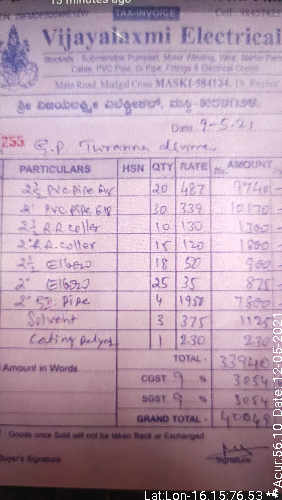 13 minutes ago
TAX-INVOICE
Cell: 98457423
Vijayalaxmi Electrical
Stockists : Submersible Pumpset, Motor Winding, Wire, Starter Parts
Cable, PVC Pipe, Gi Pipe, Fittings & Electrical Goods
Main Road, Mudgal Cross MASKI-584124. Dt. Raichur
ಶ್ರೀ ವಿಜಯಲಕ್ಷ್ಮೀ ಎಲೆಕ್ಟ್ರೀಕಲ್, ಮಸ್ಕಿ
Date 9-5-21
255 G.P.
PARTICULARS HSN QTY RATE AMOUNT
2½ PVC pipe 20 487 9740
2" PVC pipe 30 339 10170
2½ R.R coller 10 130 1300
2" R.R coller 15 120 1800
2½ Elbow 18 50 900
2" Elbow 25 35 875
2" GI Pipe 4 1950 7800
Solvent 3 375 1125
1 230 230
TOTAL - 33940
Amount in Words
CGST 9 % 3054
SGST 9 % 3054
GRAND TOTAL - 40049
E : Goods once Sold will not be taken Back or Exchanged
Buyer's Signature
Signature
Lat:Lon-16.15:76.53
Acur:56.10 Date:12-05-2021